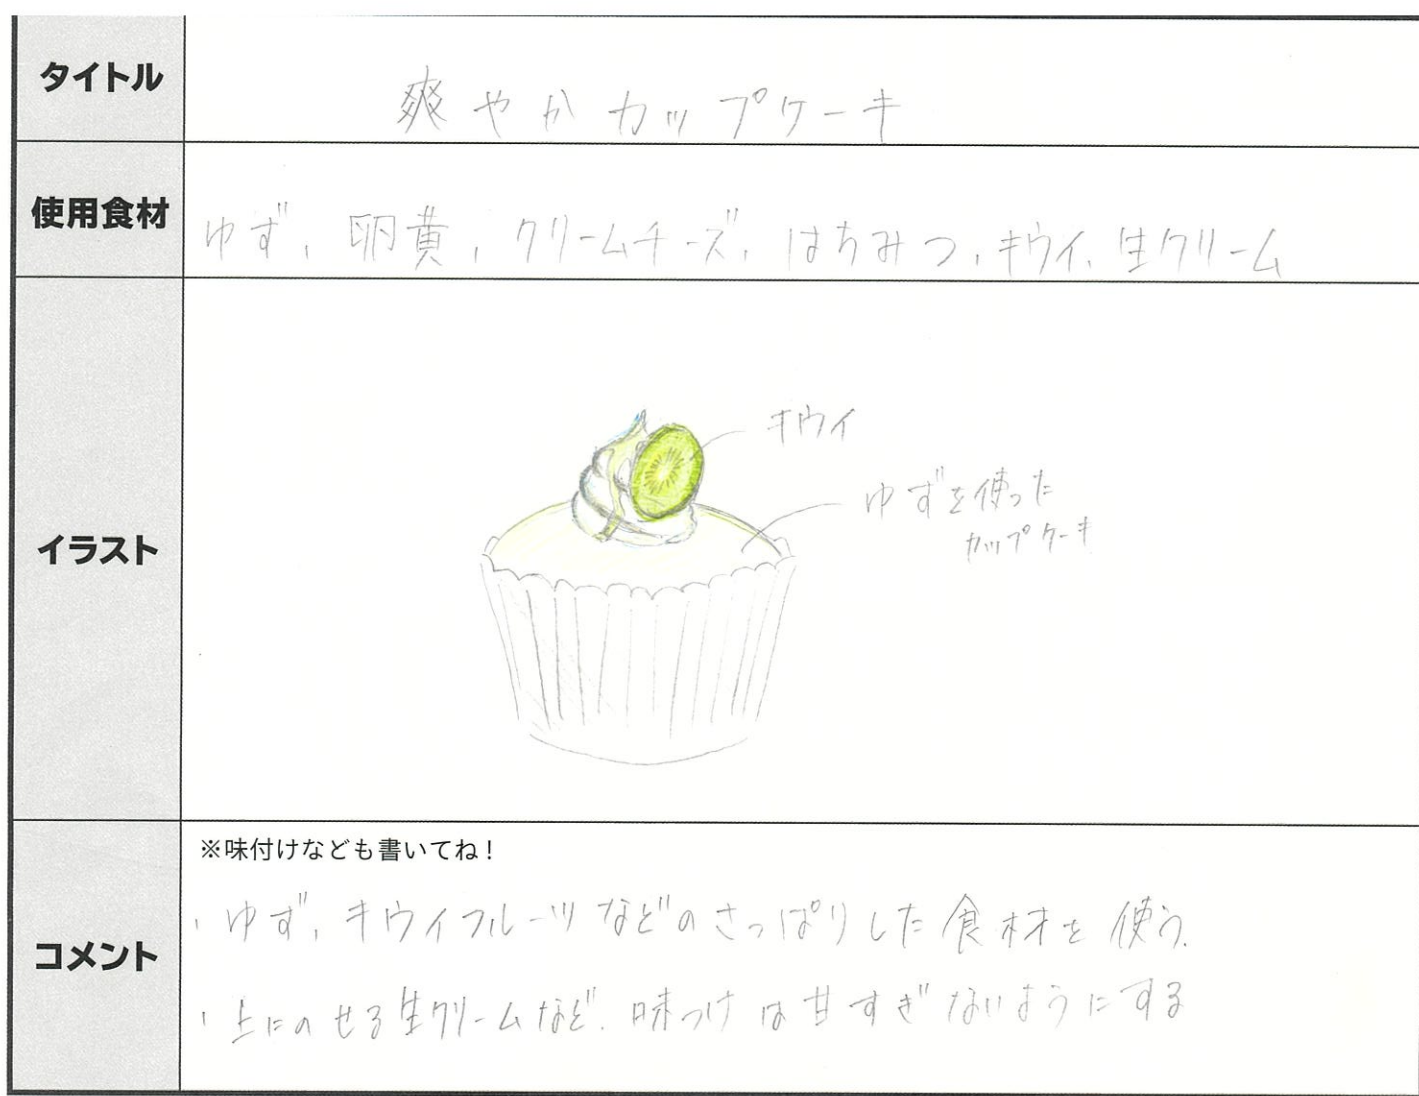 タイトル
爽やかカップケーキ
使用食材
ゆず、卵黄、クリームチーズ、はちみつ、キウイ、生クリーム
イラスト
キウイ
ゆずを使った
カップケーキ
コメント
※味付けなども書いてね！
・ゆず、キウイフルーツなどのさっぱりした食材を使う。
・上にのせる生クリームなど、味つけは甘すぎないようにする